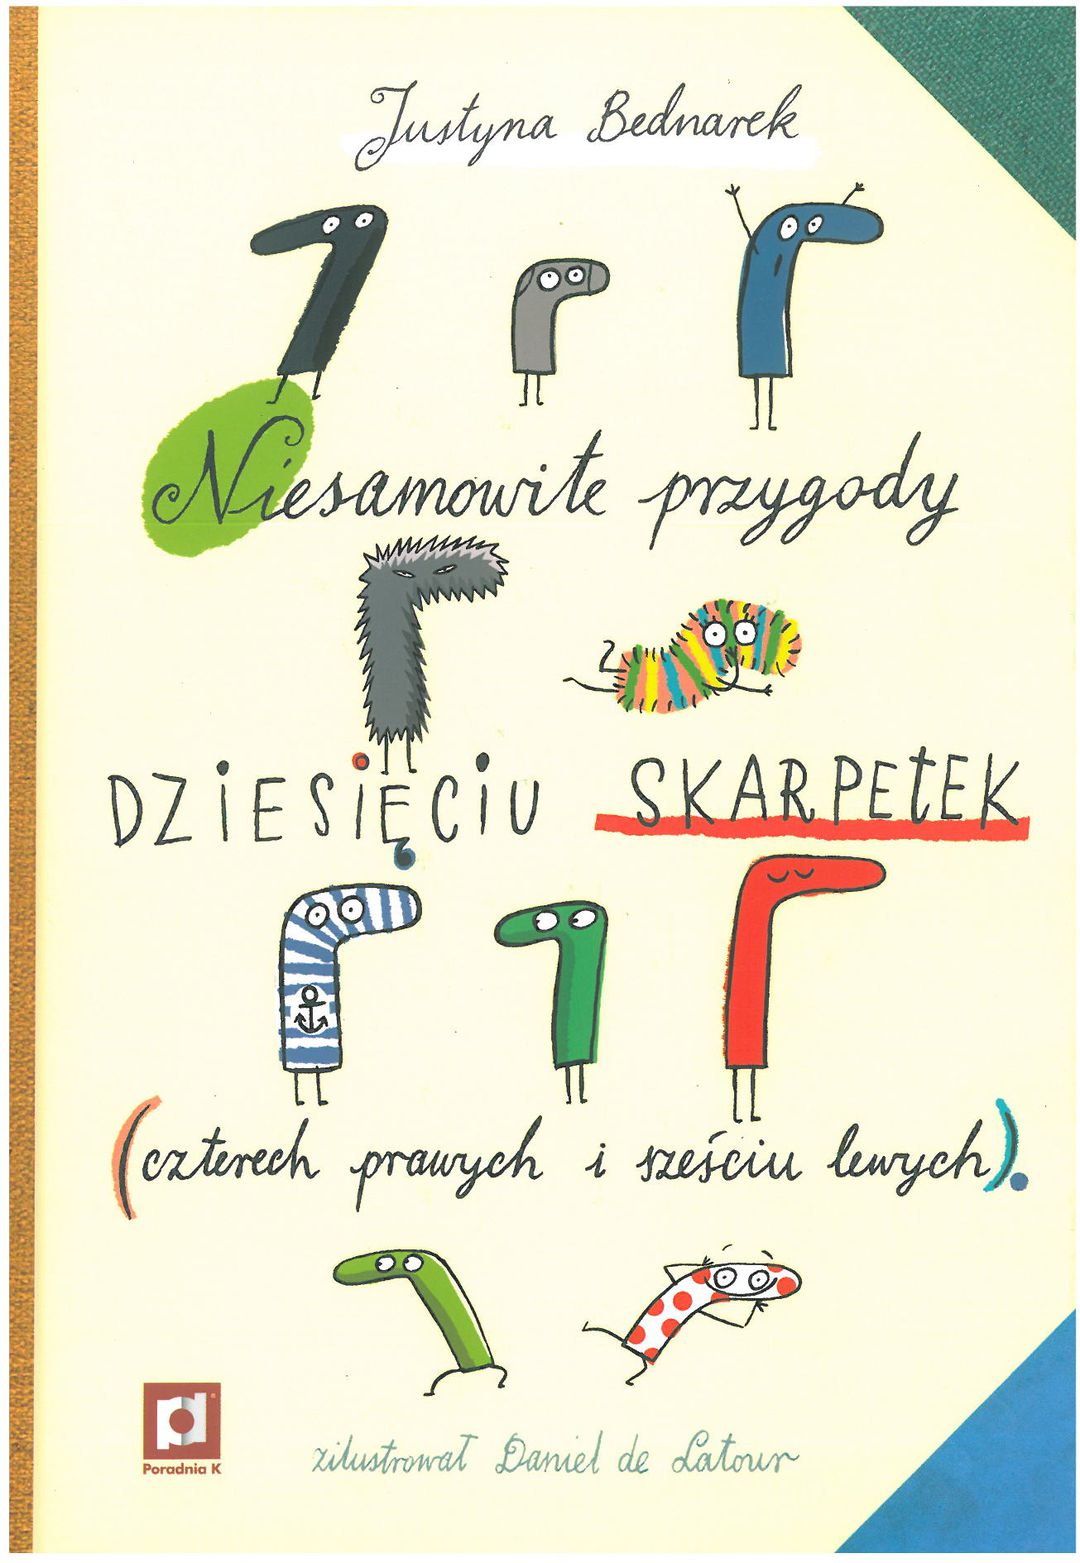 Justyna Bednarek
Niesamowite przygody
DZIESIĘCIU SKARPETEK
(czterech prawych i sześciu lewych).
Poradnia K
zilustrował Daniel de Latour